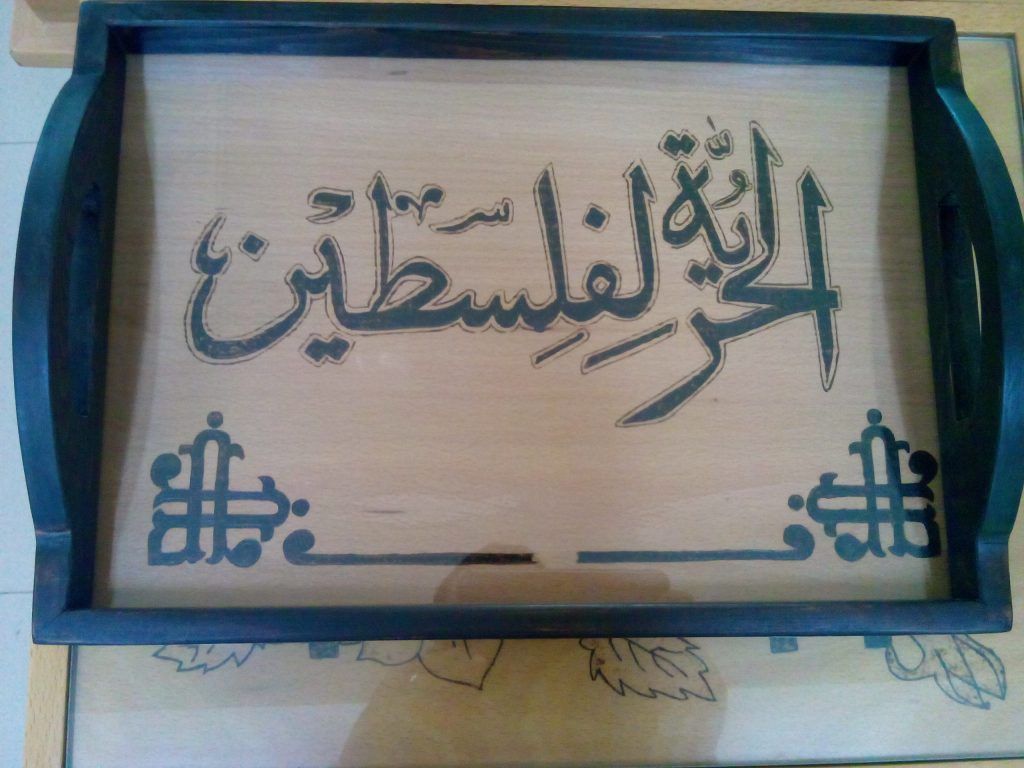 الحُرِّيَّة لِفِلسطِيْن